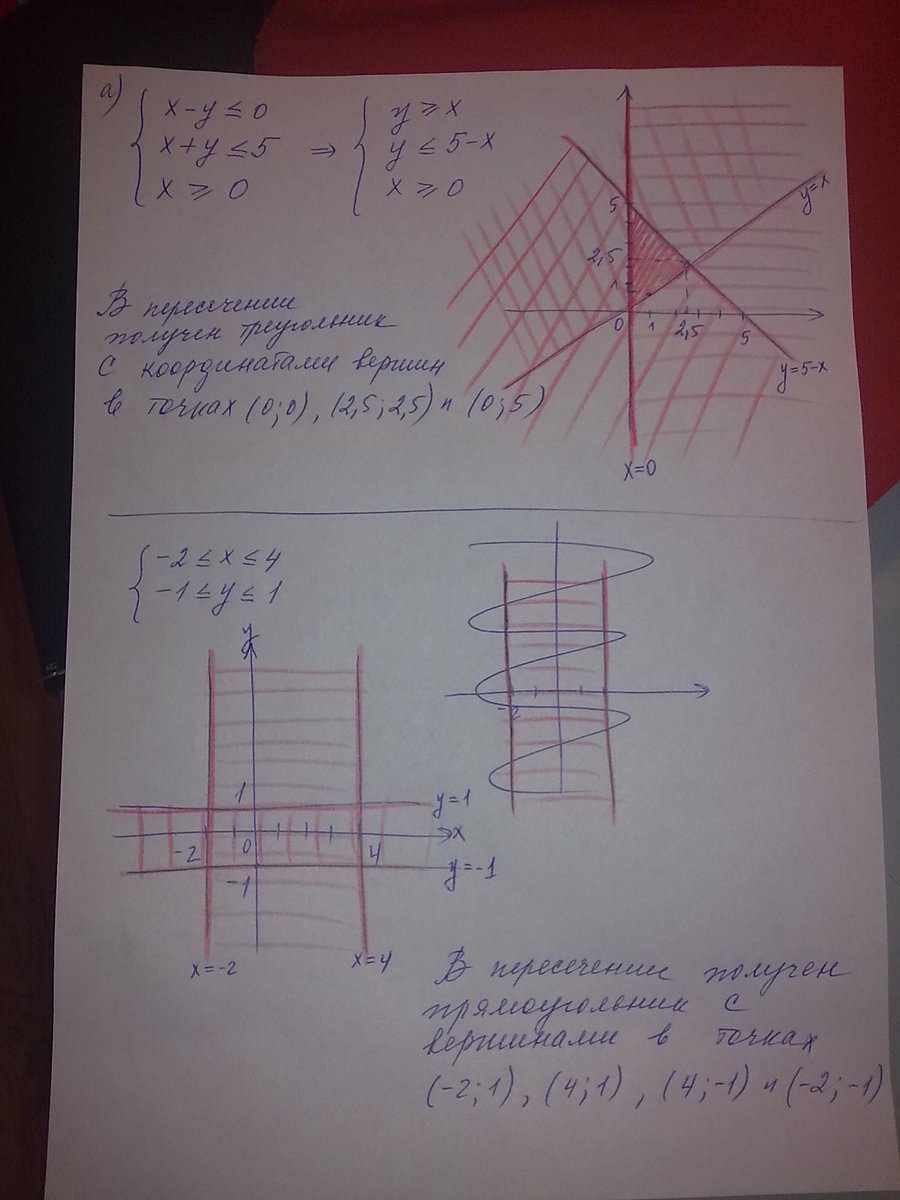 а)
{ x-y ≤ 0
x+y ≤ 5
x ≥ 0
⇒
{ y ≥ x
y ≤ 5-x
x ≥ 0
5
2,5
1
0
1
2,5
5
y=x
y=5-x
x=0
В пересечении
получен треугольник
с координатами вершин
в точках (0;0), (2,5;2,5) и (0;5)
{ -2 ≤ x ≤ 4
-1 ≤ y ≤ 1
-2
y
1
y=1
x
-2
0
4
-1
y=-1
x=-2
x=4
В пересечении получен
прямоугольник с
вершинами в точках
(-2;1), (4;1), (4;-1) и (-2;-1)